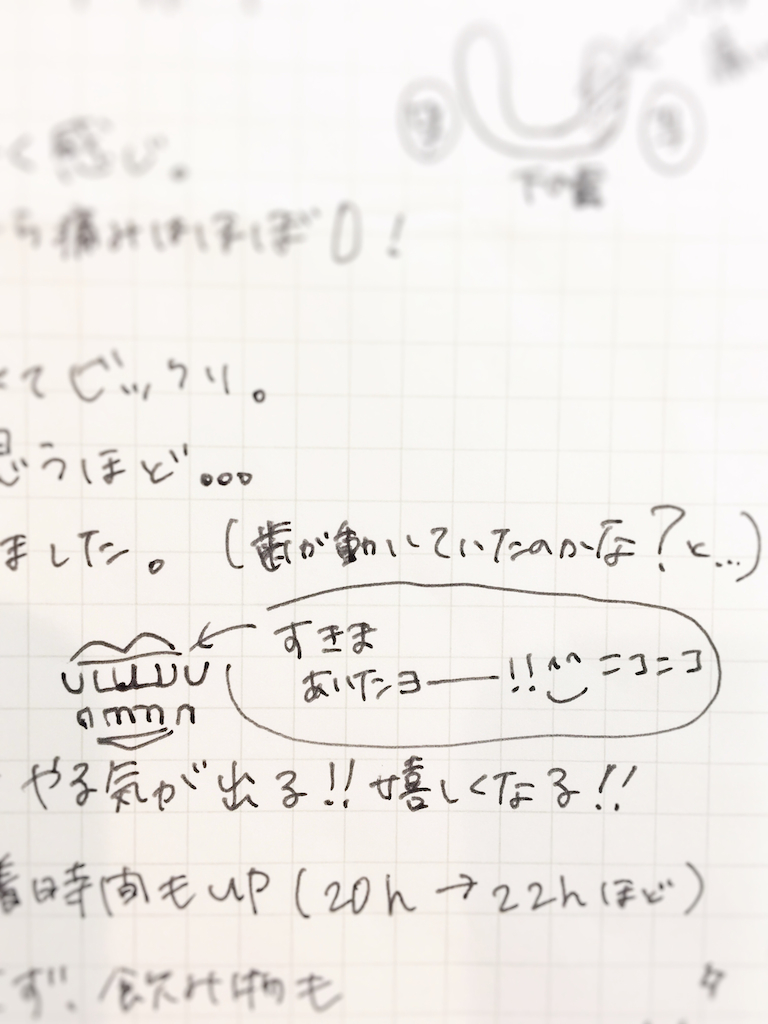 下の歯
く感じ。
ら痛みはほぼ0!
てビックリ。
思うほど...
ました。(歯が動いていたのかな?と...)
すきま
あいたヨー!!^^ニコニコ
やる気が出る!!嬉しくなる!!
着時間もUP(20h→22hほど)
ず、飲み物も